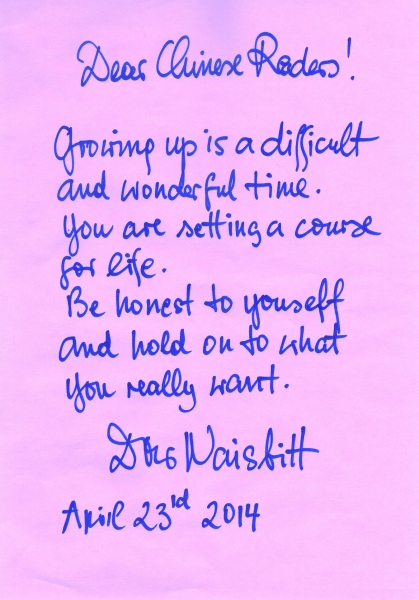 Dear Chinese Readers!
Growing up is a difficult
and wonderful time.
You are setting a course
for life.
Be honest to youself
and hold on to what
you really want.
Doris Naisbitt
April 23rd 2014